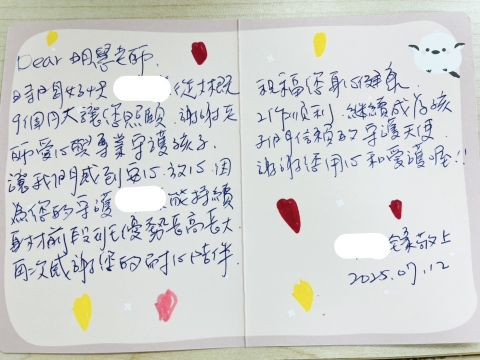 Dear 明慧老師,
時間好快 從大概
9個月大讓您照顧,謝謝老
師愛心與專業守護孩子
讓我們感到安心.放心.因
為您的守護 能持續
取材前段班優勢長高長大
再次感謝您的耐心陪伴.
祝福您身心健康
工作順利,繼續成為孩
子們信賴的守護天使
謝謝您用心和愛護喔!!
敬上
2025.07.12